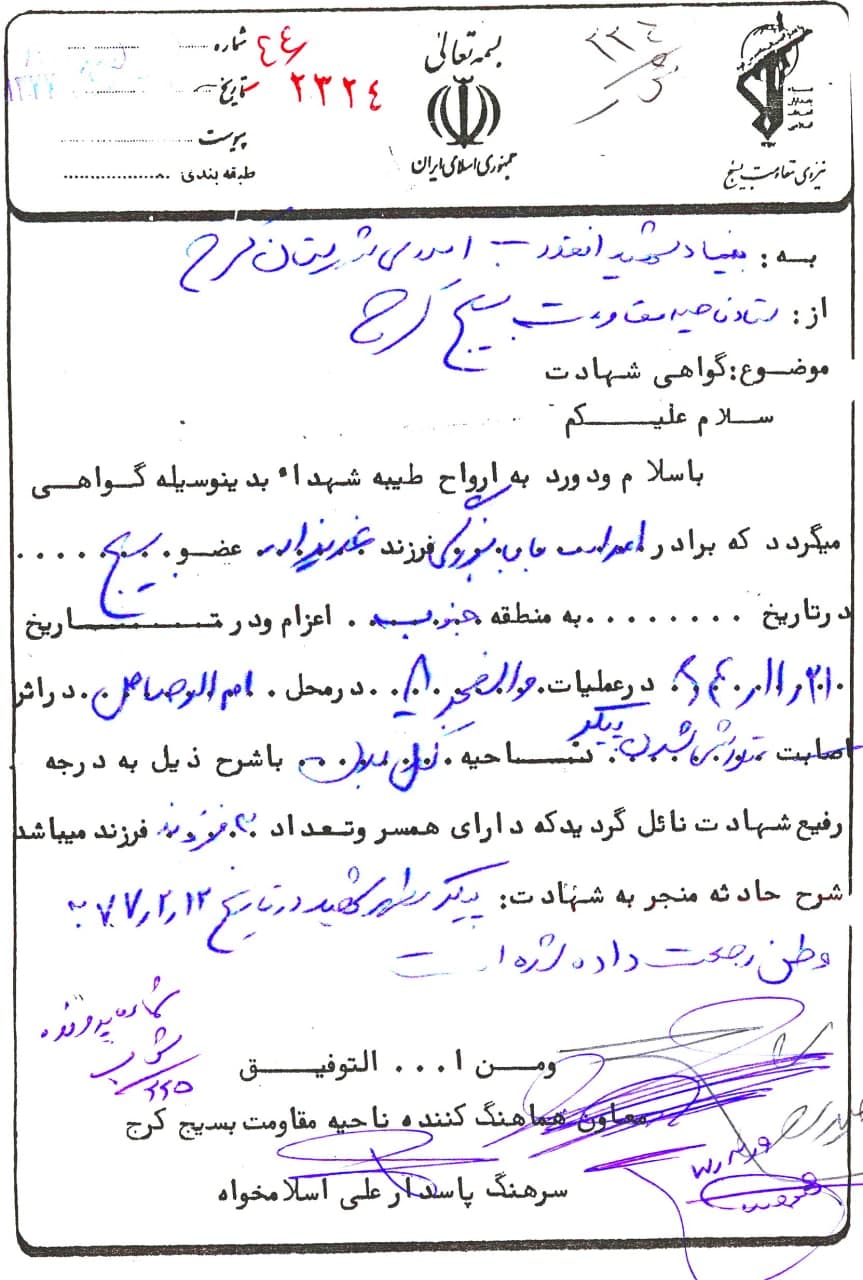 بسمه تعالی
جمهوری اسلامی ایران
نیروی مقاومت بسیج
شماره ۴۴
تاریخ ۲۳۲۴
پیوست
طبقه بندی
به : بنیاد شهید انقلاب اسلامی شهرستان کرج
از : ستاد ناحیه مقاومت بسیج کرج
موضوع: گواهی شهادت
سلام علیکم
باسلام ودرود به ارواح طیبه شهداء بدینوسیله گواهی
میگردد که برادر فرزند عضو بسیج
درتاریخ ........ به منطقه جنوب اعزام ودر تاریخ
درعملیات والفجر ۸ درمحل ام الرصاص دراثر
اصابت پیکر ناحیه باشرح ذیل به درجه
رفیع شهادت نائل گردیدکه دارای همسر وتعداد فرزند فرزند میباشد
شرح حادثه منجر به شهادت: پیکر مطهر شهید در تاریخ ۷۷/۲/۱۲ به
وطن رجعت داده شده است
شماره پرونده
ومن ا... التوفیق
معاون هماهنگ کننده ناحیه مقاومت بسیج کرج
سرهنگ پاسدار علی اسلامخواه